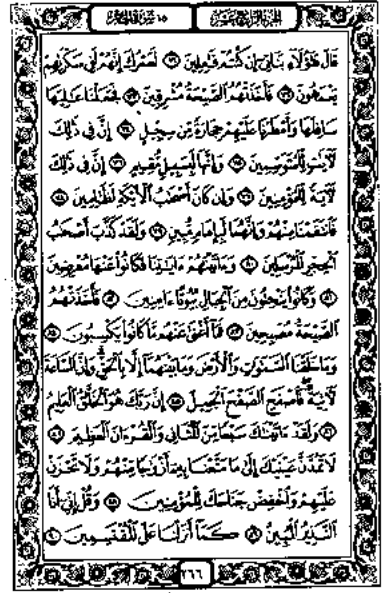 سورة الحجر ١٥ الجزء الرابع عشر
قَالَ هَٰٓؤُلَآءِ بَنَاتِىٓ إِن كُنتُمْ فَٰعِلِينَ ٧١ لَعَمْرُكَ إِنَّهُمْ لَفِى سَكْرَتِهِمْ
يَعْمَهُونَ ٧٢ فَأَخَذَتْهُمُ ٱلصَّيْحَةُ مُشْرِقِينَ ٧٣ فَجَعَلْنَا عَٰلِيَهَا
سَافِلَهَا وَأَمْطَرْنَا عَلَيْهِمْ حِجَارَةً مِّن سِجِّيلٍ ٧٤ إِنَّ فِى ذَٰلِكَ
لَءَايَٰتٍ لِّلْمُتَوَسِّمِينَ ٧٥ وَإِنَّهَا لَبِسَبِيلٍ مُّقِيمٍ ٧٦ إِنَّ فِى ذَٰلِكَ
لَءَايَةً لِّلْمُؤْمِنِينَ ٧٧ وَإِن كَانَ أَصْحَٰبُ ٱلْأَيْكَةِ لَظَٰلِمِينَ ٧٨
فَٱنتَقَمْنَا مِنْهُمْ وَإِنَّهُمَا لَبِإِمَامٍ مُّبِينٍ ٧٩ وَلَقَدْ كَذَّبَ أَصْحَٰبُ
ٱلْحِجْرِ ٱلْمُرْسَلِينَ ٨٠ وَءَاتَيْنَٰهُمْ ءَايَٰتِنَا فَكَانُوا۟ عَنْهَا مُعْرِضِينَ
٨١ وَكَانُوا۟ يَنْحِتُونَ مِنَ ٱلْجِبَالِ بُيُوتًا ءَامِنِينَ ٨٢ فَأَخَذَتْهُمُ
ٱلصَّيْحَةُ مُصْبِحِينَ ٨٣ فَمَآ أَغْنَىٰ عَنْهُم مَّا كَانُوا۟ يَكْسِبُونَ ٨٤
وَمَا خَلَقْنَا ٱلسَّمَٰوَٰتِ وَٱلْأَرْضَ وَمَا بَيْنَهُمَآ إِلَّا بِٱلْحَقِّ وَإِنَّ ٱلسَّاعَةَ
لَءَاتِيَةٌ فَٱصْفَحِ ٱلصَّفْحَ ٱلْجَمِيلَ ٨٥ إِنَّ رَبَّكَ هُوَ ٱلْخَلَّٰقُ ٱلْعَلِيمُ
٨٦ وَلَقَدْ ءَاتَيْنَٰكَ سَبْعًا مِّنَ ٱلْمَثَانِى وَٱلْقُرْءَانَ ٱلْعَظِيمَ ٨٧
لَا تَمُدَّنَّ عَيْنَيْكَ إِلَىٰ مَا مَتَّعْنَا بِهِۦٓ أَزْوَٰجًا مِّنْهُمْ وَلَا تَحْزَنْ
عَلَيْهِمْ وَٱخْفِضْ جَنَاحَكَ لِلْمُؤْمِنِينَ ٨٨ وَقُلْ إِنِّىٓ أَنَا
ٱلنَّذِيرُ ٱلْمُبِينُ ٨٩ كَمَآ أَنزَلْنَا عَلَى ٱلْمُقْتَسِمِينَ ٩٠
٢٦٦